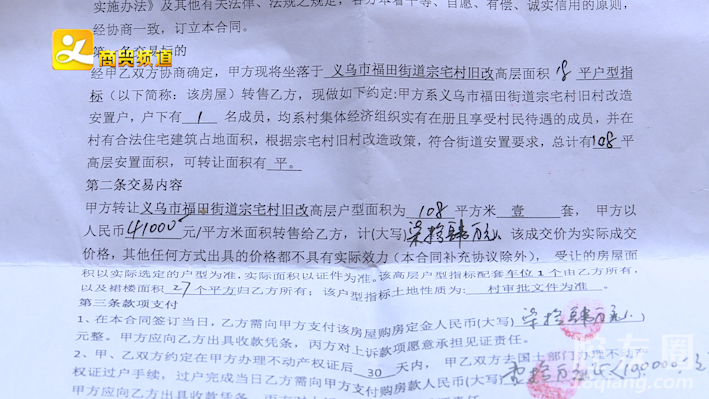 实施办法》及其他有关法律、法规之规定，各方本着平等、自愿、有偿、诚实信用的原则，
经协商一致，订立本合同。
商贸频道
条交易标的
经甲乙双方协商确定，甲方现将坐落于 义乌市福田街道宗宅村旧改高层面积 18 平户型指
标（以下简称：该房屋）转售乙方，现做如下约定:甲方系义乌市福田街道宗宅村旧村改造
安置户，户下有 1 名成员，均系村集体经济组织实有在册且享受村民待遇的成员，并在
村有合法住宅建筑占地面积，根据宗宅村旧村改造政策，符合街道安置要求，总计有108平
高层安置面积，可转让面积有 平。
第二条交易内容
甲方转让义乌市福田街道宗宅村旧改高层户型面积为 108 平方米 壹 套， 甲方以
人民币41000元/平方米面积转售给乙方，计(大写)柒拾肆万元、该成交价为实际成交
价格，其他任何方式出具的价格都不具有实际效力（本合同补充协议除外）， 受让的房屋面
积以实际选定的户型为准,实际面积以证件为准。该高层户型指标配套车位1个由乙方所有，
以及裙楼面积 27个平方归乙方所有；该户型指标土地性质为: 村审批文件为准 。
第三条款项支付
1、在本合同签订当日，乙方需向甲方支付该房屋购房定金人民币(大写) 柒拾肆万元
元整。甲方应向乙方出具收款凭条，丙方对上诉款项愿意承担见证责任。
2、甲、乙双方约定在甲方办理不动产权证后 30 天内， 甲乙双方去国土部门办理不动
权证过户手续，过户完成当日乙方需向甲方支付购房款人民币(大写)
甲方应向乙方出具收款凭条